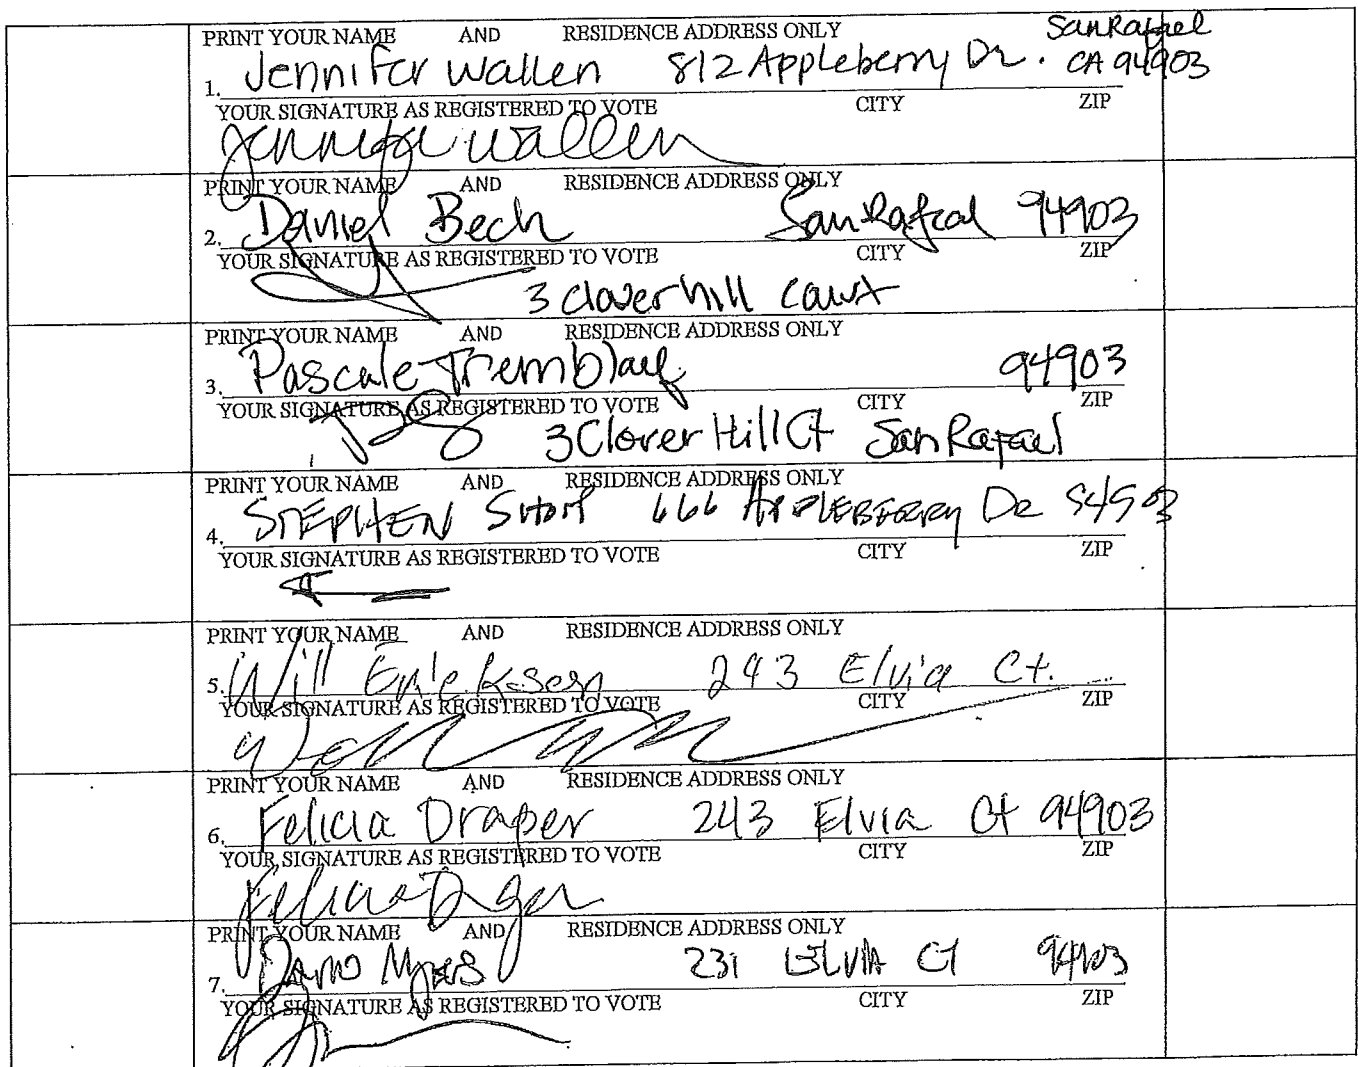 PRINT YOUR NAME AND RESIDENCE ADDRESS ONLY San Rafael
1. Jennifer Wallen 812 Appleberry Dr. CA 94903
YOUR SIGNATURE AS REGISTERED TO VOTE CITY ZIP
Jennifer Wallen
PRINT YOUR NAME AND RESIDENCE ADDRESS ONLY
2. Daniel Bech San Rafeal 94903
YOUR SIGNATURE AS REGISTERED TO VOTE CITY ZIP
3 Cloverhill Court
PRINT YOUR NAME AND RESIDENCE ADDRESS ONLY
3. Pascale Tremblay 94903
YOUR SIGNATURE AS REGISTERED TO VOTE CITY ZIP
3 Clover Hill Ct San Rafael
PRINT YOUR NAME AND RESIDENCE ADDRESS ONLY
4. STEPHEN 666 APPLEBERRY DR 94903
YOUR SIGNATURE AS REGISTERED TO VOTE CITY ZIP
PRINT YOUR NAME AND RESIDENCE ADDRESS ONLY
5. Will Ericksen 243 Elvia Ct.
YOUR SIGNATURE AS REGISTERED TO VOTE CITY ZIP
PRINT YOUR NAME AND RESIDENCE ADDRESS ONLY
6. Felicia Draper 243 Elvia Ct 94903
YOUR SIGNATURE AS REGISTERED TO VOTE CITY ZIP
Felicia Draper
PRINT YOUR NAME AND RESIDENCE ADDRESS ONLY
7. 231 ELVIA CT 94903
YOUR SIGNATURE AS REGISTERED TO VOTE CITY ZIP